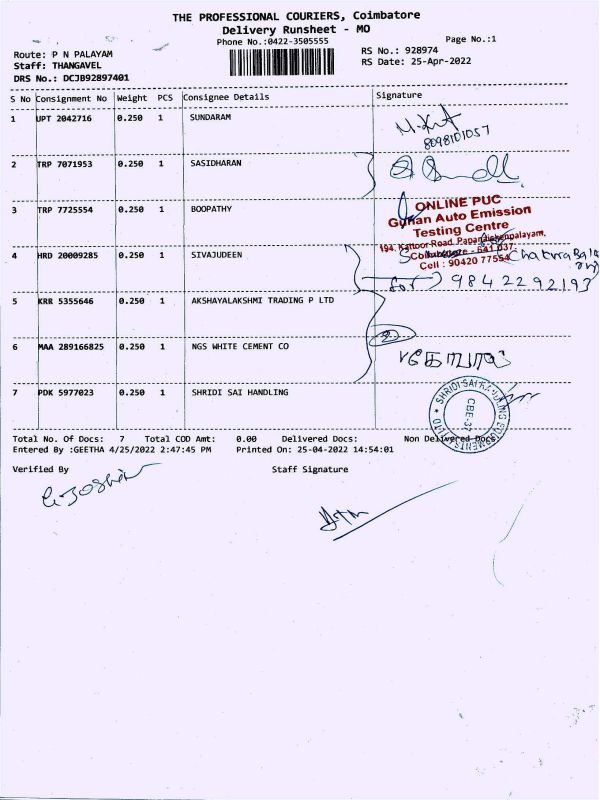 THE PROFESSIONAL COURIERS, Coimbatore
Delivery Runsheet - MO
Phone No.:0422-3505555
Page No.:1
Route: P N PALAYAM
RS No.: 928974
Staff: THANGAVEL
RS Date: 25-Apr-2022
DRS No.: DCJB92897401
S No Consignment No Weight PCS Consignee Details Signature
1 UPT 2042716 0.250 1 SUNDARAM
8098101057
2 TRP 7071953 0.250 1 SASIDHARAN
3 TRP 7725554 0.250 1 BOOPATHY
ONLINE PUC
Guhan Auto Emission
Testing Centre
194, Kattoor Road, Papanaickenpalayam,
Coimbatore - 641 037.
Cell : 90420 77554
4 HRD 20009285 0.250 1 SIVAJUDEEN
for 9842292193
5 KRR 5355646 0.250 1 AKSHAYALAKSHMI TRADING P LTD
2
6 MAA 289166825 0.250 1 NGS WHITE CEMENT CO
7 PDK 5977023 0.250 1 SHRIDI SAI HANDLING
SHRIDI SAI HANDLING EQUIPMENTS P LTD
CBE-37
Total No. Of Docs: 7 Total COD Amt: 0.00 Delivered Docs: Non Delivered Docs:
Entered By :GEETHA 4/25/2022 2:47:45 PM Printed On: 25-04-2022 14:54:01
Verified By Staff Signature